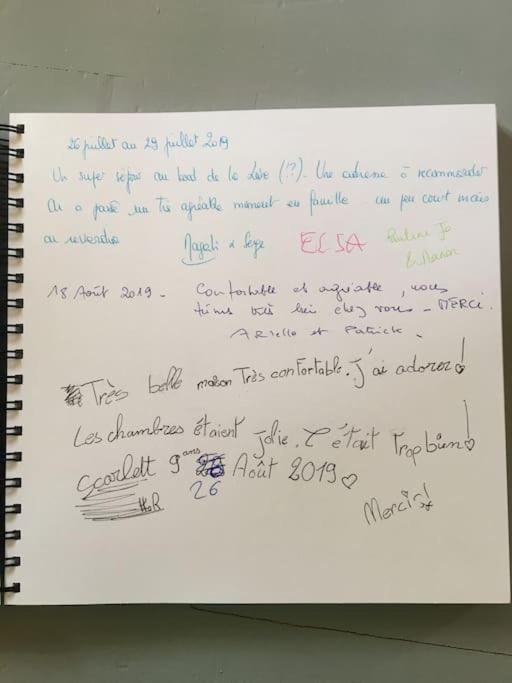 26 juillet au 29 juillet 2019
Un super séjour au bord de la Loire (!?). Une adresse à recommander
On a passé un très agréable moment en famille un peu court mais
on reviendra Magali & Serge ELSA Pauline Jo
& Manon
18 Août 2019 - Confortable et agréable, nous
étions très bien chez vous - MERCI.
Arielle et Patrick.
Très belle maison Très confortable. J'ai adorez! ♡
Les chambres étaient jolie. C'était trop bien! ♡
Scarlett 9 ans 26 Août 2019 ♡
Merci!